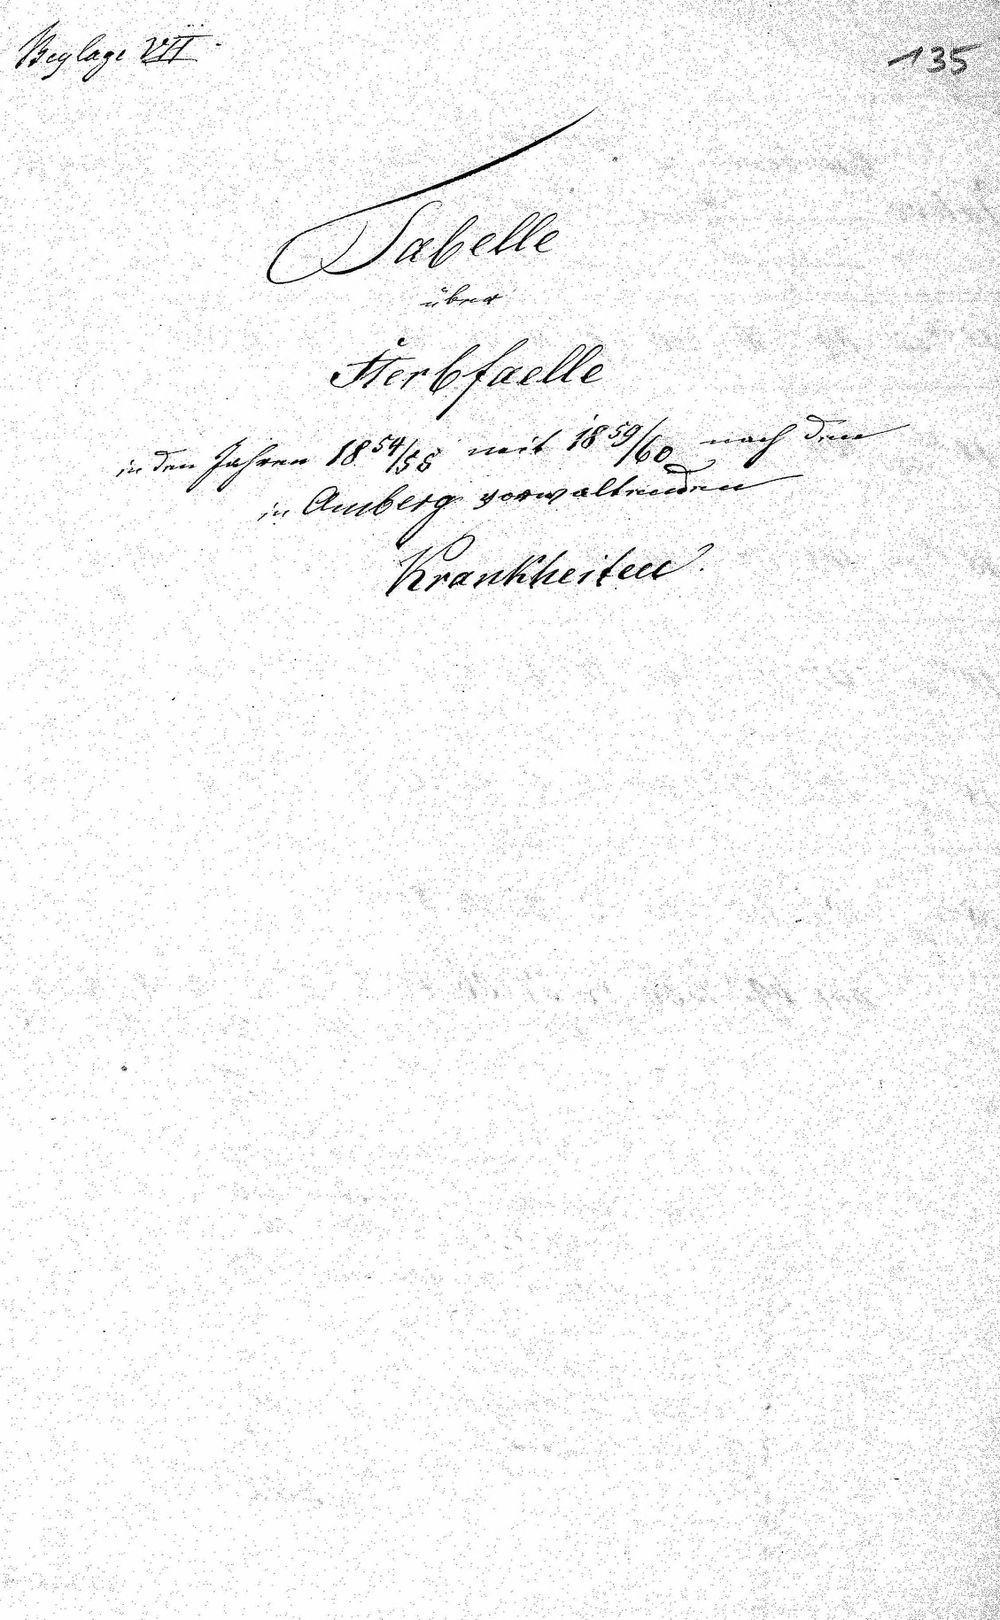 Beylage VII.
135
Tabelle
über
Sterbfaelle
in den Jahren 1854/55 mit 1859/60 nach den
in Amberg vorwaltenden
Krankheiten.